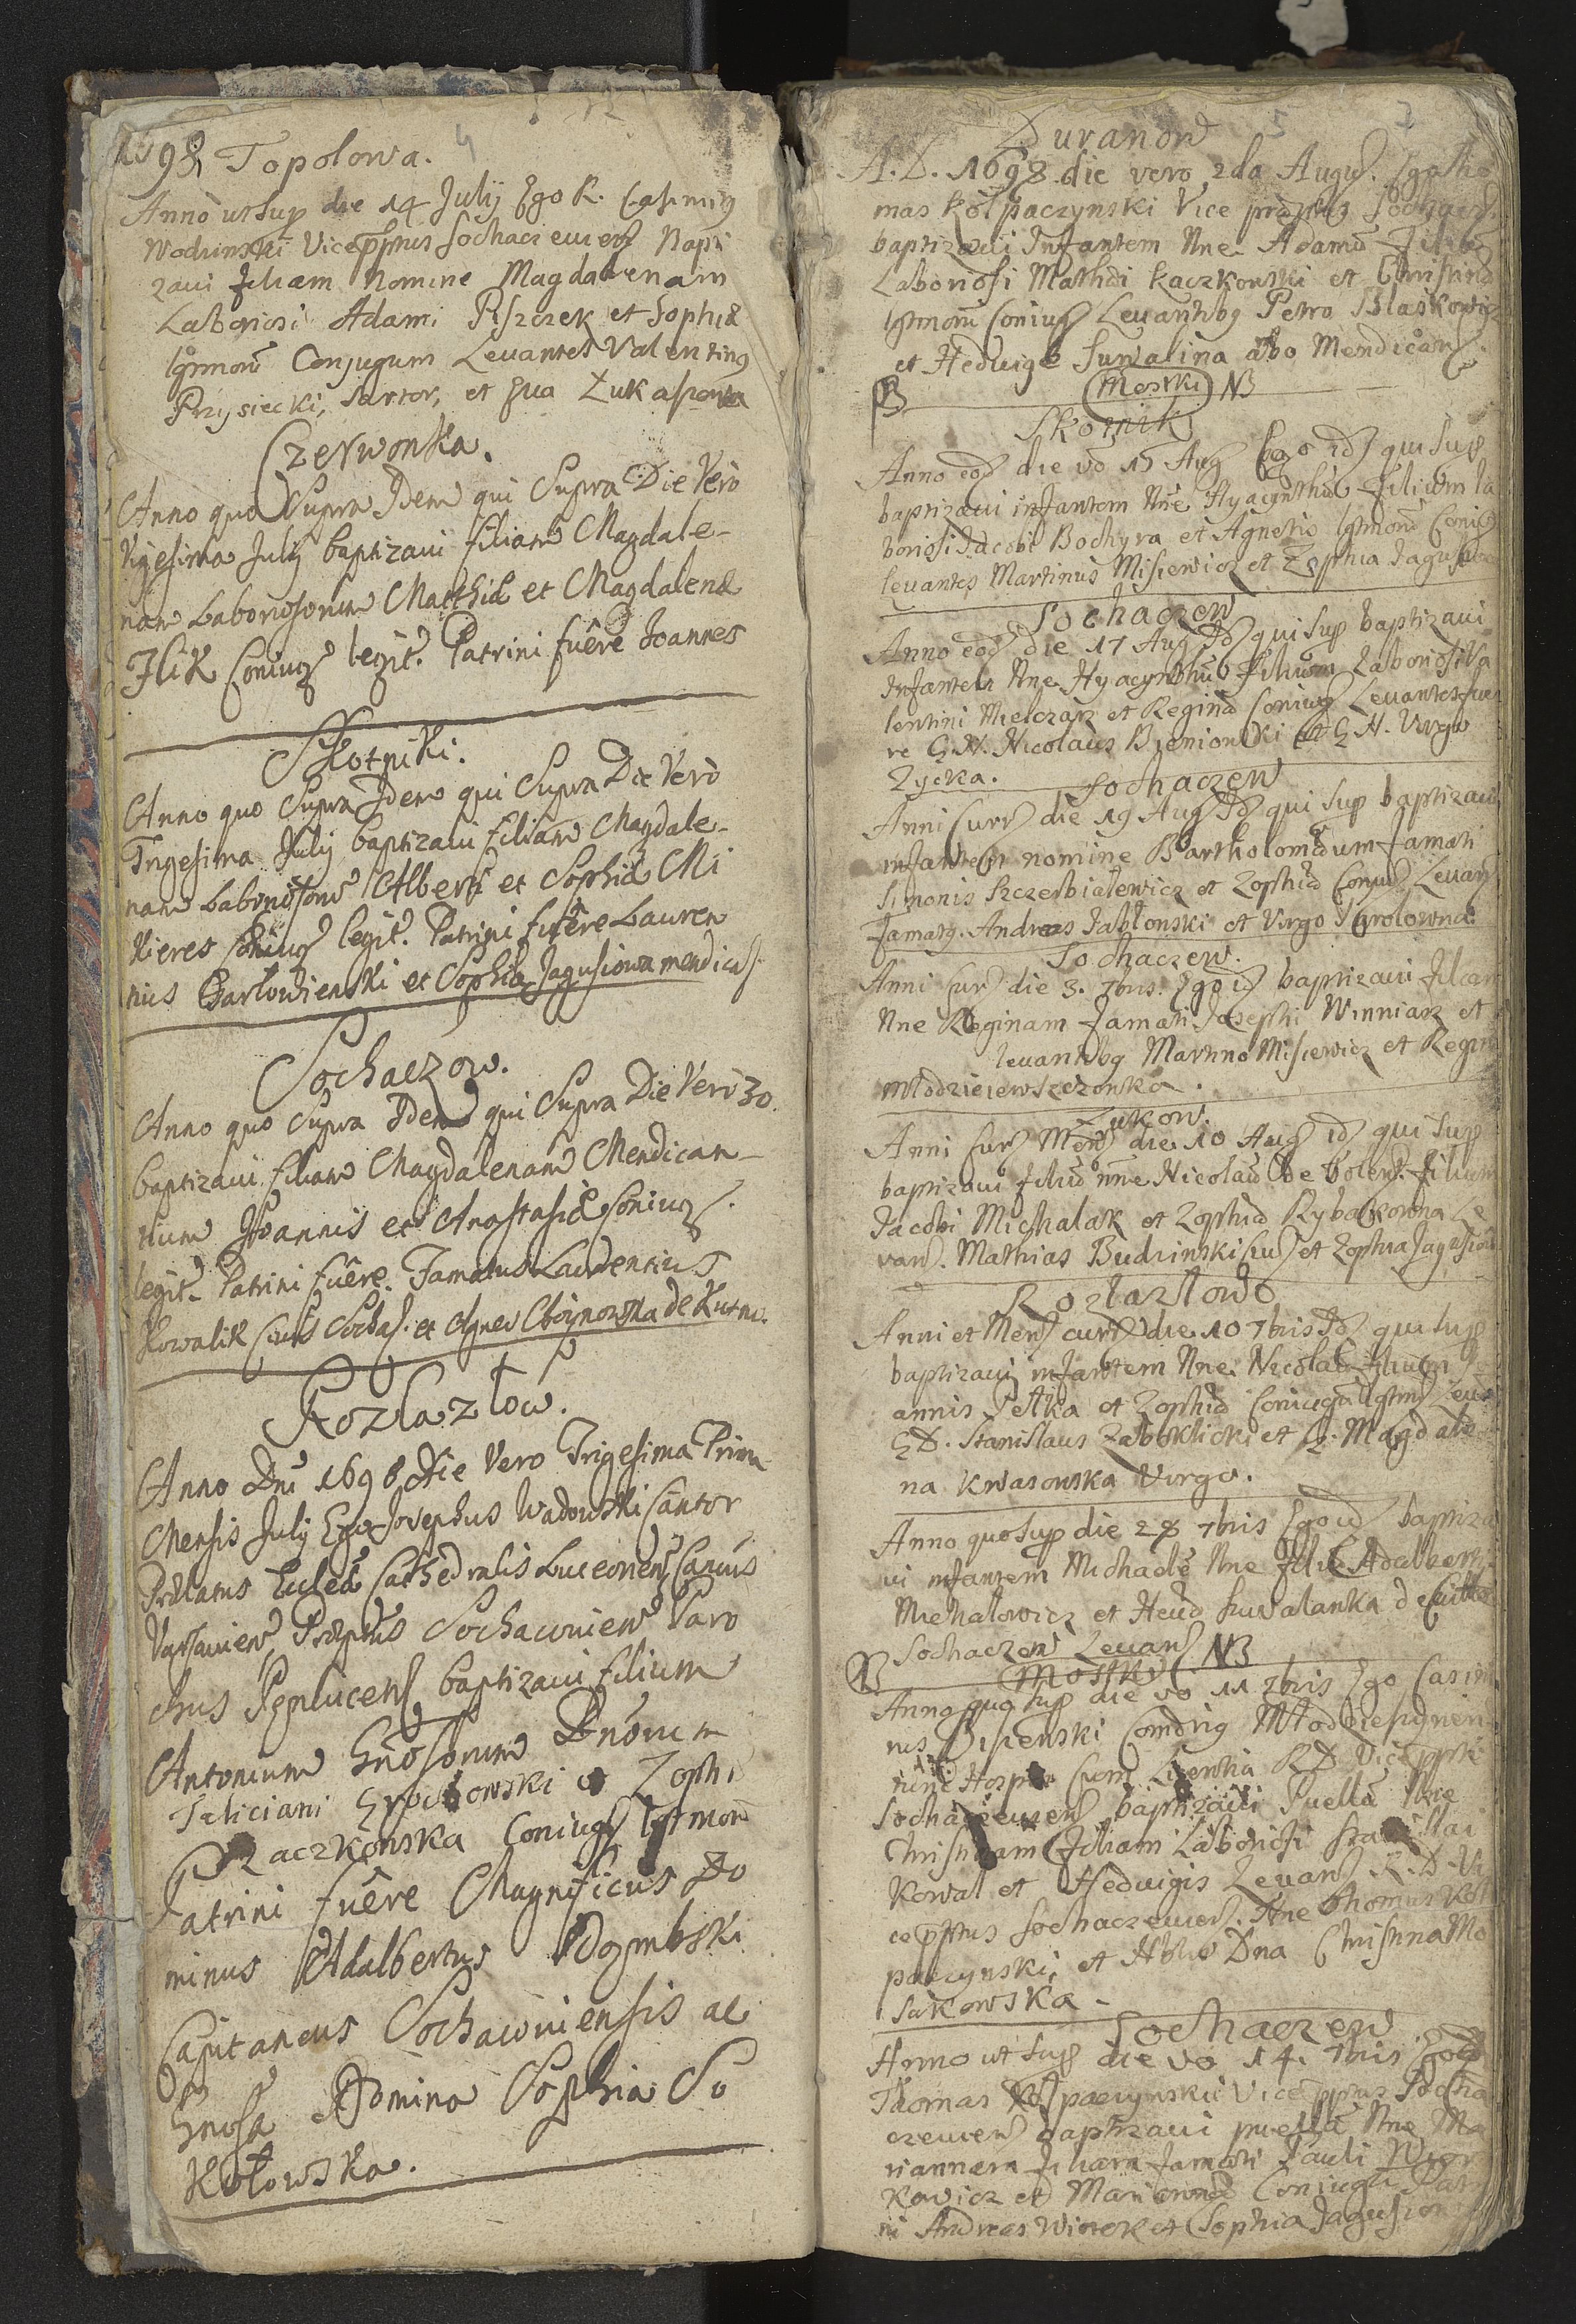 98 Topolowa. 4
Anno ut sup die 14 July Ego R. Casimirg
Wodzinski Vicepptus Sochaczeviens Bapti
zavi filiam Nomine Magdalenam
Laboriosi Adami Piszczek et Sophiæ
lgtmorũ Conjugum Levantes Valenting
Przysiecki, Sartor, et Eva Łukaszowa
Czerwonka.
Anno quo Supra Idem qui Supra Die Vero
Vigesima July baptizavi filiam Magdale-
nam Laboriosorum Matthiæ et Magdalenæ
Ilik Coniug legit. Patrini fuêre Joannes
Skotniki.
Anno quo Supra Idem qui Supra Die Vero
Trigesima July baptizavi filiam Magdale-
nam Laboriosorũ Alberti et Sophiæ Mi
kieres Coniug legit. Patrini fuêre Lauren
tius Bartowienski et Sophia Jagusiowa mendicas.
Sochaczow.
Anno quo Supra Idem qui Supra Die Vero 30.
baptizavi filiam Magdalenam Mendican-
tium Joannis et Anastasiæ Coniug.
legit. Patrini fuêre. Famatus Laurentius
Kowalik Civis Sochas. et Agnes Choinowska de Kutno.
Kozłazłow.
Anno Dni 1698 Die Vero Trigesima Prima
Mensis July Ego Josephus Wadowski Cantor
Prælatus Eccleæ Cathedralis Luceoriens Canus
Varsaviens Præptus Sochaciviens Paro
chus baptizavi filium
Antonium Gnosorum Dnorum
Feliciani Grochowski et Zophi
Raczkowska Coniugũ lgtmorũ
Patrini fuêre Magnificus Do
minus Adalbertus Dąmbski
Capitaneus Sochacoviensis ac
Gnosa Domina Sophia So
kołowska.
Duranow 5
A.D. 1698 die vero 2da Augus. Ego Tho
mas Kołpaczynski Vice præptus Sochacz.
baptizavi Infantem Nne Adamũ Filium
Laboriosi Mathæi Kaczkowski et Christinæ
lgtmorũ Coniug Levantibg Petro Blaskowicz
et Hedvige Suwalina abo Mendican.
Mostki NB
Skotnik
Anno eod die vo 15 Aug Ego id qui sup
baptizavi infantem Nne Hyacynthũ Filium la
boriosi Jacobi Bochyra et Agnetis lgtmorũ Coniug
levantes Martinus Misiewicz et Zophia Jagusiowa
Sochaczew
Anno eod die 17 Aug Id qui sup baptizavi
Infantem Nne Hyacynthũ Filium Laboriosi Va
lentini Mielczarz et Reginæ Coniug Levantes fue
re G.N. Nicolaus Bieniowski et G.N. Virgo
Zycka.
Sochaczew
Anni Curr die 19 Aug Id qui sup baptizavi
infantem nomine Bartholomæum Famati
Simonis Szczerbialewicz et Zophiæ Coniug Levan
Famatg. Andreas Jabłonski et Virgo Karolowna.
Sochaczew.
Anni Cur die 3. 7bris. Ego id baptizavi Filiam
Nne Reginam Famati Josephi Winniarz et
levantibg Martino Misiewicz et Regin
Młodzieiewszczonka.
Zukow.
Anni Cur Mens die 10 Aug id qui sup
baptizavi Filiũ nne Nicolaũ de Filium
Jacobi Michalak et Zophiæ Rybakowna Le
van. Mathias Budzinski et Zophia Jagusiow
Kozłazłowo
Anni et Mens curr die 10 7bris Id qui sup
baptizavi infantem Nne Nicolaũ Filium Jo
annis Petka et Zophiæ Coniugũ lgtm Leva
G.D. Stanislaus Zaboklicki et G. Magdale
na Kwasowska Virgo.
Anno quo sup die 28 7bris Ego id baptiza
vi infantem Michaelẽ Nne filiũ Adalberti
Michalowicz et Hed Suvalanka de Civitte
Sochaczew Levan NB
Mostki
Anno quo sup die vo 11 7bris Ego Casimi
rus Comdrig Młodziesynen
Hosp cum Licentia R.D. Viceppti
Sochaczevien baptizavi Puellã Nne
Christinam Filiam Laboriosi Stanislai
Kowal et Hedvigis Levan R.D. Vi
cepptus Sochaczevien. Nne Thomas Koł
paczynski, et Dna Christina Mo
sakowska-
Sochaczew
Anno ut sup die vo 14. 7bris Ego
Thomas Kołpaczynski Vicepptus Socha
czevien baptizavi puellã Nne Ma
riannam filiam Famati Pauli Wior
kowicz et Mariannæ Coniugũ Patri
ni Andreas Wiorek et Sophia Jagusiow